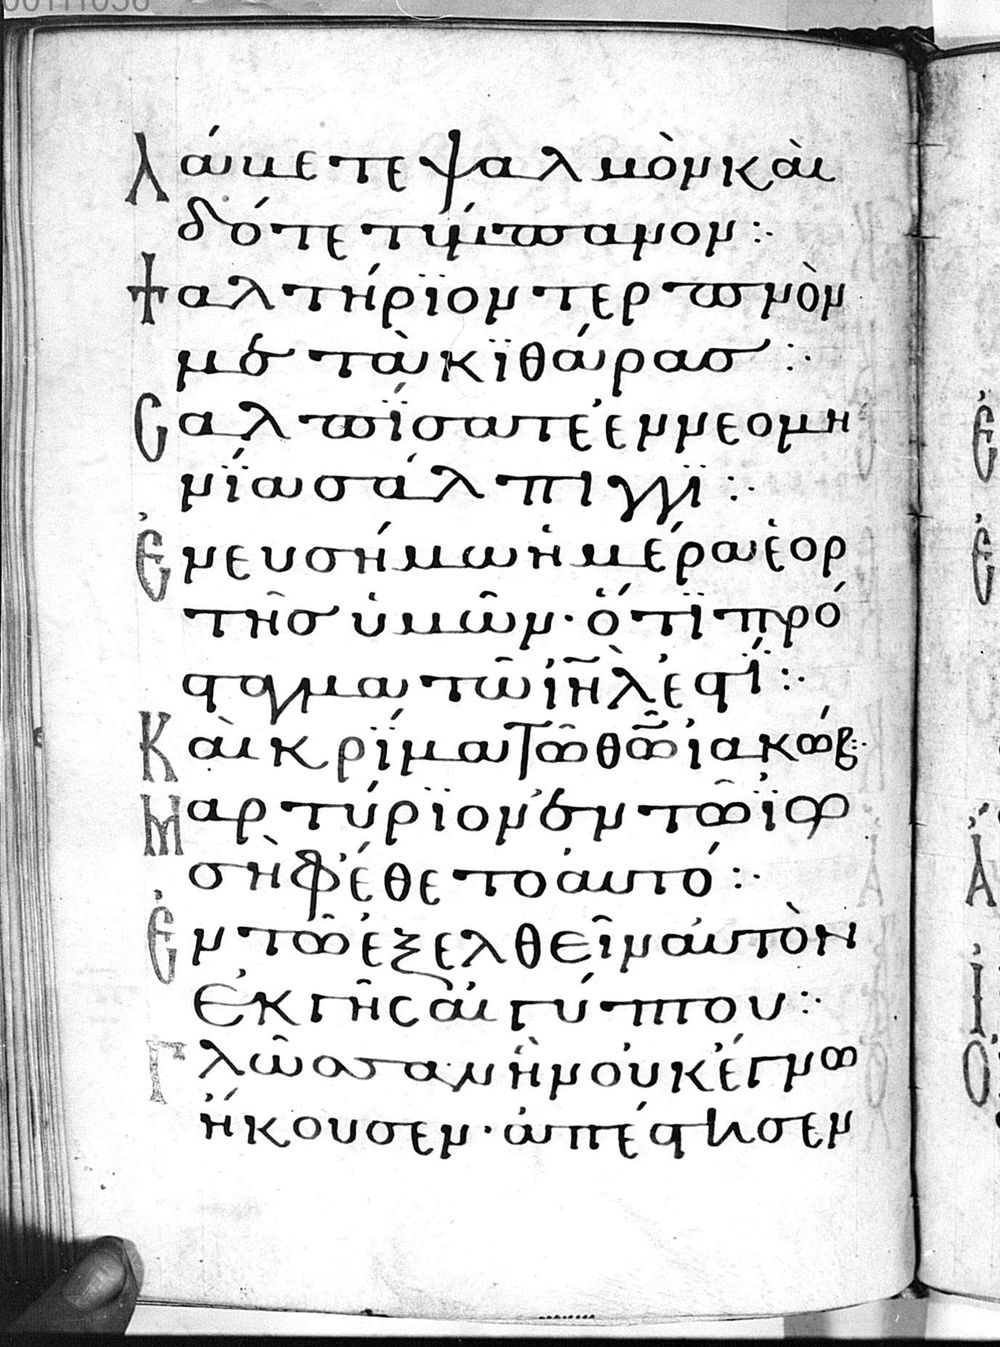 00111056
Λάβετε ψαλμὸν καὶ
δότε τύμπανον :·
Ψαλτήρϊον τερπνὸν
μετὰ κϊθάρασ :·
Σαλπΐσατε ἐν νεομη
νΐα σάλπιγγϊ :·
Ἐν ευσήμω ἡμέρα ἑορ
τῆσ ὑμῶν · ὅτϊ πρό
σταγμα τῶ ἰῆλ ἐστΐ :·
Καὶ κρΐμα τῶ θῶ ἰακώβ :·
Μαρτύρϊον ἐν τῶ ἰω
σὴφ ἔθετο ἀυτό :·
Ἐν τῶ ἐξελθεῖν ἀυτὸν
ἐκ γῆς ἀιγύπτου :·
Γλῶσσαν ἣν ὀυκ ἔγνω
ἤκουσεν · ἀπέστησεν